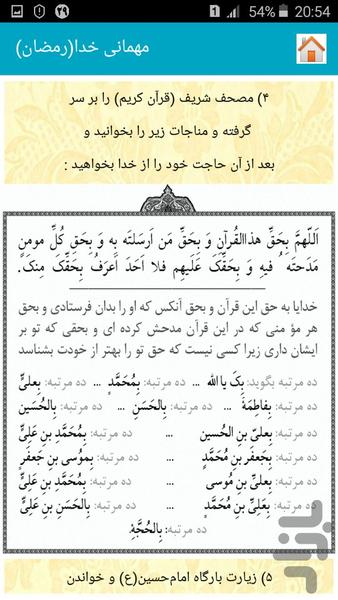 54% 20:54
مهمانی خدا(رمضان)
۴) مصحف شریف (قرآن کریم) را بر سر
گرفته و مناجات زیر را بخوانید و
بعد از آن حاجت خود را از خدا بخواهید :
اَللّهمَّ بِحَقِّ هذاالقُرآنِ وَ بِحَقِّ مَن اَرسَلتَه بِهِ وَ بِحَقِ کُلِّ مومنٍ
مَدَحتَه ُ فیهِ وَ بِحَقِّکَ عَلَیهِم فَلا اَحَدَ اَعرَفُ بِحَقِّکَ مِنکَ.
خدایا به حق این قرآن و بحق آنکس که او را بدان فرستادی و بحق
هر مؤ منی که در این قرآن مدحش کرده ای و بحقی که تو بر
ایشان داری زیرا کسی نیست که حق تو را بهتر از خودت بشناسد
ده مرتبه بگوید: بِکَ یا الله ... ده مرتبه: بِمُحَمَّدٍ ... ده مرتبه: بِعلیٍّ
ده مرتبه: بِفاطِمَةَ ... ده مرتبه: بِالحَسَنِ ... ده مرتبه: بِالحُسَین
ده مرتبه: بِعلیّ بنِ الحُسین ... ده مرتبه: بِمُحَمَّدِ بنِ عَلِیٍّ
ده مرتبه: بِجَعفَر بنِ مُحَمَّدٍ ... ده مرتبه: بِموُسی بنِ جَعفَرٍ
ده مرتبه: بِعلیِّ بنِ مُوسی ... ده مرتبه: بِمُحَمَّدِ بنِ عَلِیٍّ
ده مرتبه: بِعَلِیِّ بنِ مُحَمَّدٍ ... ده مرتبه: بِالحَسَنِ بنِ عَلِیٍّ
ده مرتبه: بِالحُجَّةِ.
بازار
۵) زیارت بارگاه امام‌حسین(ع) و خواندن